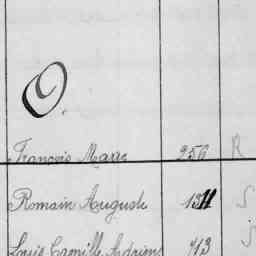 O.
François Marie 256 R
Romain Auguste S
Louis Camille Adrien 713 S